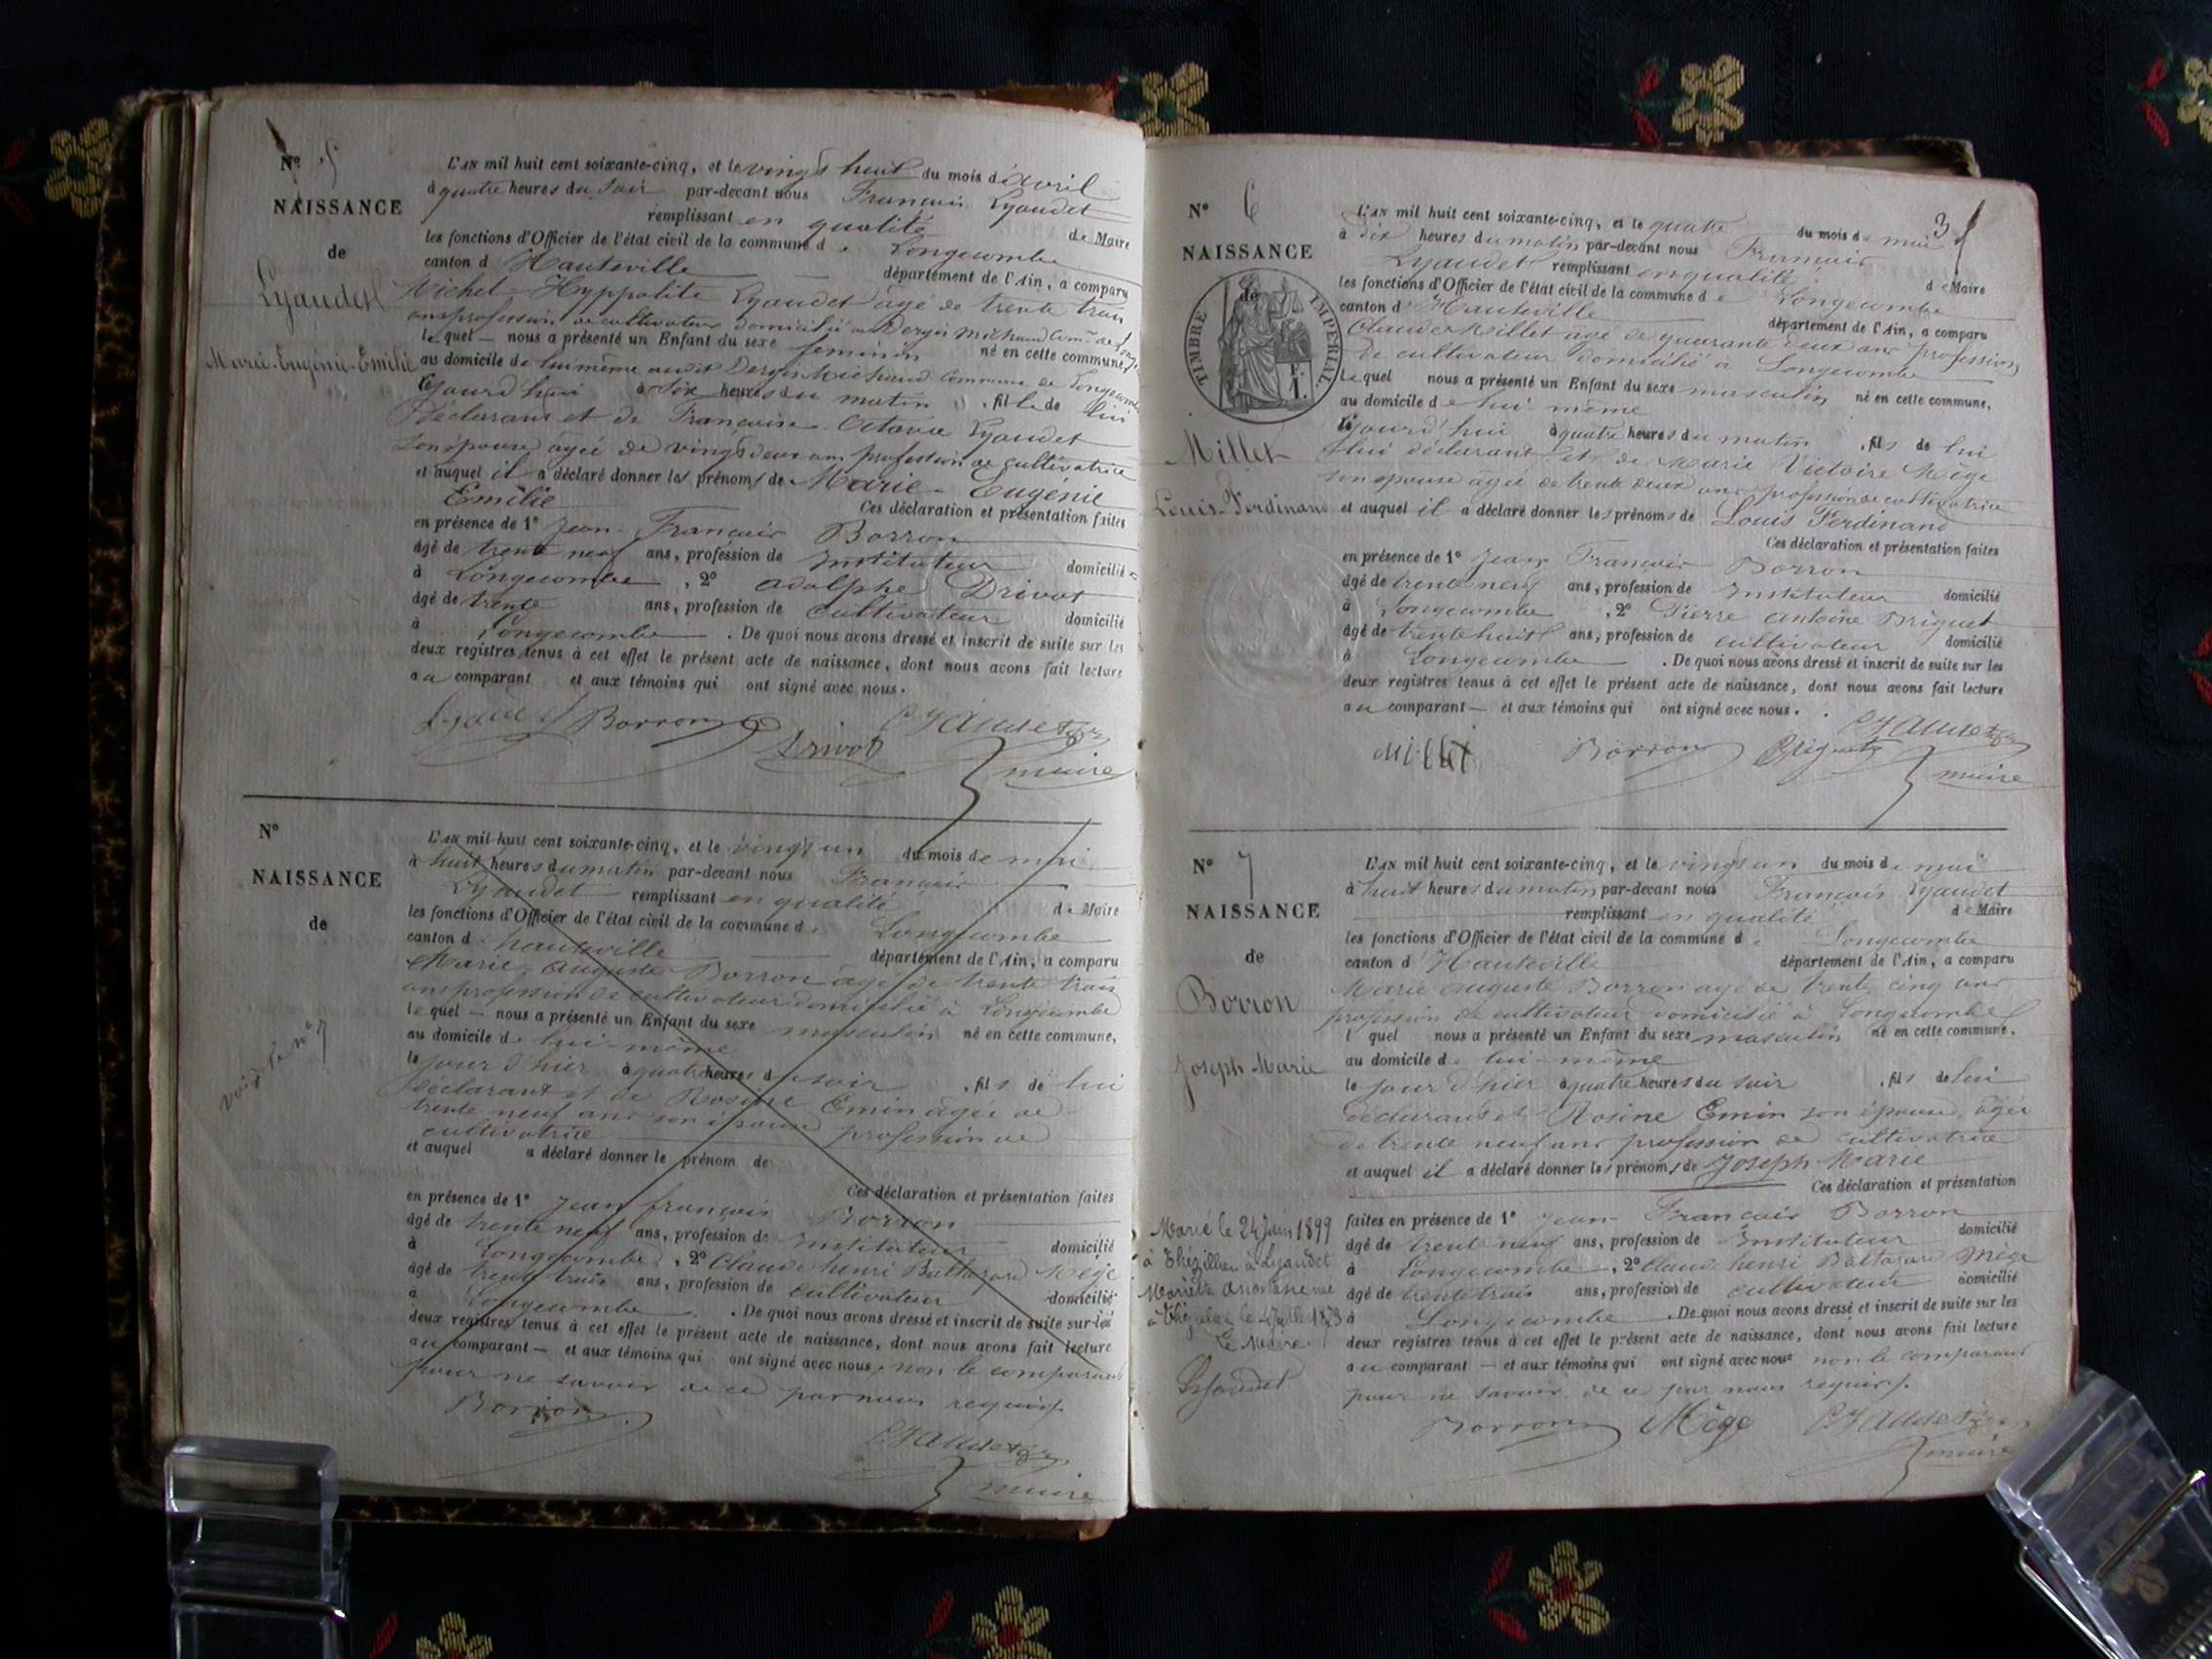 N° 5
NAISSANCE
de
Lyaudet
Marie-Eugénie-Emilie
L'AN mil huit cent soixante-cinq, et le vingt huit du mois d'avril
à quatre heures du soir par-devant nous François Lyaudet
remplissant en qualité de Maire
les fonctions d'Officier de l'état civil de la commune de Longecombe
canton d'Hauteville département de l'Ain, a comparu
Michel-Hyppolite Lyaudet âgé de trente trois
ans profession de cultivateur domicilié au Dergis Michaud
lequel nous a présenté un Enfant du sexe féminin né en cette commune,
au domicile de lui même audit Dergis Michaud Commune de Longecombe
cejourd'hui à six heures du matin , fille de lui
Déclarant et de Françoise-Octavie Lyaudet
son épouse agée de vingt deux ans profession de cultivatrice
et auquel il a déclaré donner les prénoms de Marie-Eugénie
Emilie Ces déclaration et présentation faites
en présence de 1° Jean-François Borron
âgé de trente neuf ans, profession de Instituteur domicilié
à Longecombe , 2° adolphe Drivot
âgé de trente ans, profession de cultivateur domicilié
à Longecombe . De quoi nous avons dressé et inscrit de suite sur les
deux registres tenus à cet effet le présent acte de naissance, dont nous avons fait lecture
au comparant et aux témoins qui ont signé avec nous.
Lyaudet Borron Drivot Lyaudet
maire
N°
NAISSANCE
de
voir le n° 7
L'AN mil huit cent soixante-cinq, et le vingt un du mois de mai
à huit heures du matin par-devant nous François
Lyaudet remplissant en qualité de Maire
les fonctions d'Officier de l'état civil de la commune de Longecombe
canton d hauteville département de l'Ain, a comparu
Marie-auguste Borron âgé de trente trois
ans profession de cultivateur domicilié à Longecombe
lequel nous a présenté un Enfant du sexe masculin né en cette commune,
au domicile de lui-même
le jour d'hier à quatre heures du soir , fils de lui
déclarant et de Rosine Emin âgée de
trente neuf ans son épouse profession de
cultivatrice
et auquel a déclaré donner le prénom de
Ces déclaration et présentation faites
en présence de 1° Jean françois Borron
âgé de trente neuf ans, profession de Instituteur domicilié
à Longecombe , 2° Claude henri Baltazard Mège
âgé de trente trois ans, profession de cultivateur domicilié
à Longecombe . De quoi nous avons dressé et inscrit de suite sur les
deux registres tenus à cet effet le présent acte de naissance, dont nous avons fait lecture
au comparant — et aux témoins qui ont signé avec nous, non le comparant
pour ne savoir de ce par nous requis.
Borron
Lyaudet
maire
3
N° 6
NAISSANCE
de
TIMBRE IMPERIAL.
Millet
Louis-Ferdinand
L'AN mil huit cent soixante-cinq, et le quatre du mois de mai
à dix heures du matin par-devant nous François
Lyaudet remplissant en qualité de Maire
les fonctions d'Officier de l'état civil de la commune de Longecombe
canton d'Hauteville département de l'Ain, a comparu
Claude Millet agé de quarante deux ans profession
de cultivateur domicilié à Longecombe
lequel nous a présenté un Enfant du sexe masculin né en cette commune,
au domicile de lui-même
cejourd'hui à quatre heures du matin , fils de lui
lui déclarant et de Marie Victoire Mège
son épouse âgée de trente deux ans profession de cultivatrice
et auquel il a déclaré donner les prénoms de Louis Ferdinand
Ces déclaration et présentation faites
en présence de 1° Jean François Borron
âgé de trente neuf ans, profession de Instituteur domicilié
à Longecombe , 2° Pierre antoine Briguet
âgé de trente huit ans, profession de cultivateur domicilié
à Longecombe . De quoi nous avons dressé et inscrit de suite sur les
deux registres tenus à cet effet le présent acte de naissance, dont nous avons fait lecture
au comparant — et aux témoins qui ont signé avec nous.
Millet Borron Briguet Lyaudet
maire
N° 7
NAISSANCE
de
Borron
Joseph Marie
L'AN mil huit cent soixante-cinq, et le vingt un du mois de mai
à huit heures du matin par-devant nous François Lyaudet
remplissant en qualité de Maire
les fonctions d'Officier de l'état civil de la commune de Longecombe
canton d'Hauteville département de l'Ain, a comparu
Marie auguste Borron agé de trente cinq ans
profession de cultivateur domicilié à Longecombe
l quel nous a présenté un Enfant du sexe masculin né en cette commune,
au domicile de lui-même
le jour d'hier à quatre heures du soir , fils de lui
déclarant et Rosine Emin son épouse âgée
de trente neuf ans profession de cultivatrice
et auquel il a déclaré donner les prénoms de Joseph Marie
Ces déclaration et présentation
faites en présence de 1° Jean-François Borron
âgé de trente neuf ans, profession de Instituteur domicilié
à Longecombe , 2° Claude henri Baltazard Mège
âgé de trente trois ans, profession de cultivateur domicilié
à Longecombe . De quoi nous avons dressé et inscrit de suite sur les
deux registres tenus à cet effet le présent acte de naissance, dont nous avons fait lecture
au comparant — et aux témoins qui ont signé avec nous non le comparant
pour ne savoir de ce par nous requis.
Borron Mège Lyaudet
maire
Marié le 24 Juin 1899
à Thézillieu à Lyaudet
Mariette
Le Maire
Lyaudet